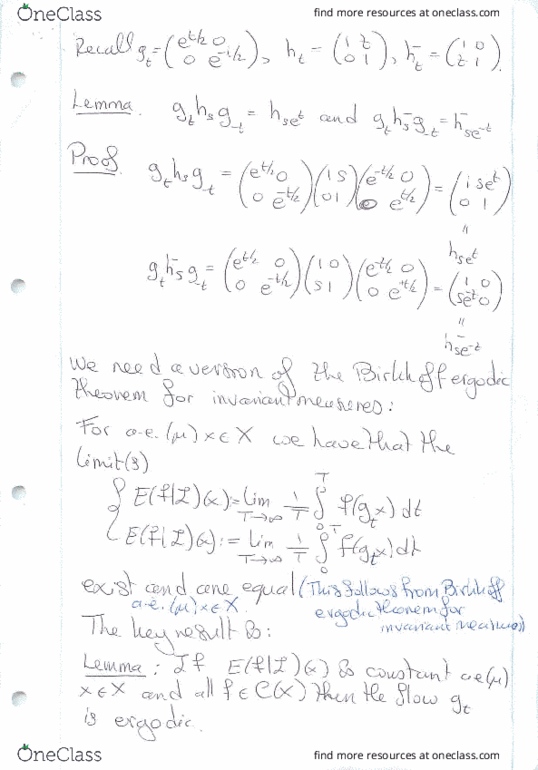 OneClass find more resources at oneclass.com
Recall g_t = (e^{t/2} 0 / 0 e^{-t/2}), h_t = (1 t / 0 1), h^-_t = (1 0 / t 1).
Lemma. g_t h_s g_{-t} = h_{se^t} and g_t h^-_s g_{-t} = h^-_{se^{-t}}
Proof. g_t h_s g_{-t} = (e^{t/2} 0 / 0 e^{-t/2}) (1 s / 0 1) (e^{-t/2} 0 / 0 e^{t/2}) = (1 se^t / 0 1)
=
h_{se^t}
g_t h^-_s g_{-t} = (e^{t/2} 0 / 0 e^{-t/2}) (1 0 / s 1) (e^{-t/2} 0 / 0 e^{t/2}) = (1 0 / se^{-t} 0)
=
h^-_{se^{-t}}
We need a version of the Birkhoff ergodic
theorem for invariant measures:
For a.e. (μ) x ∈ X we have that the
limit(s)
{ E(f|I)(x) := lim_{T→∞} 1/T ∫_0^T f(g_t x) dt
E(f|I)(x) := lim_{T→∞} 1/T ∫_0^T f(g_t x) dt
exist and are equal (This follows from Birkhoff
a.e. (μ) x ∈ X. ergodic theorem for
invariant measures)
The key result is:
Lemma: If E(f|I)(x) is constant ae(μ)
x ∈ X and all f ∈ C(X) then the flow g_t
is ergodic.
OneClass find more resources at oneclass.com